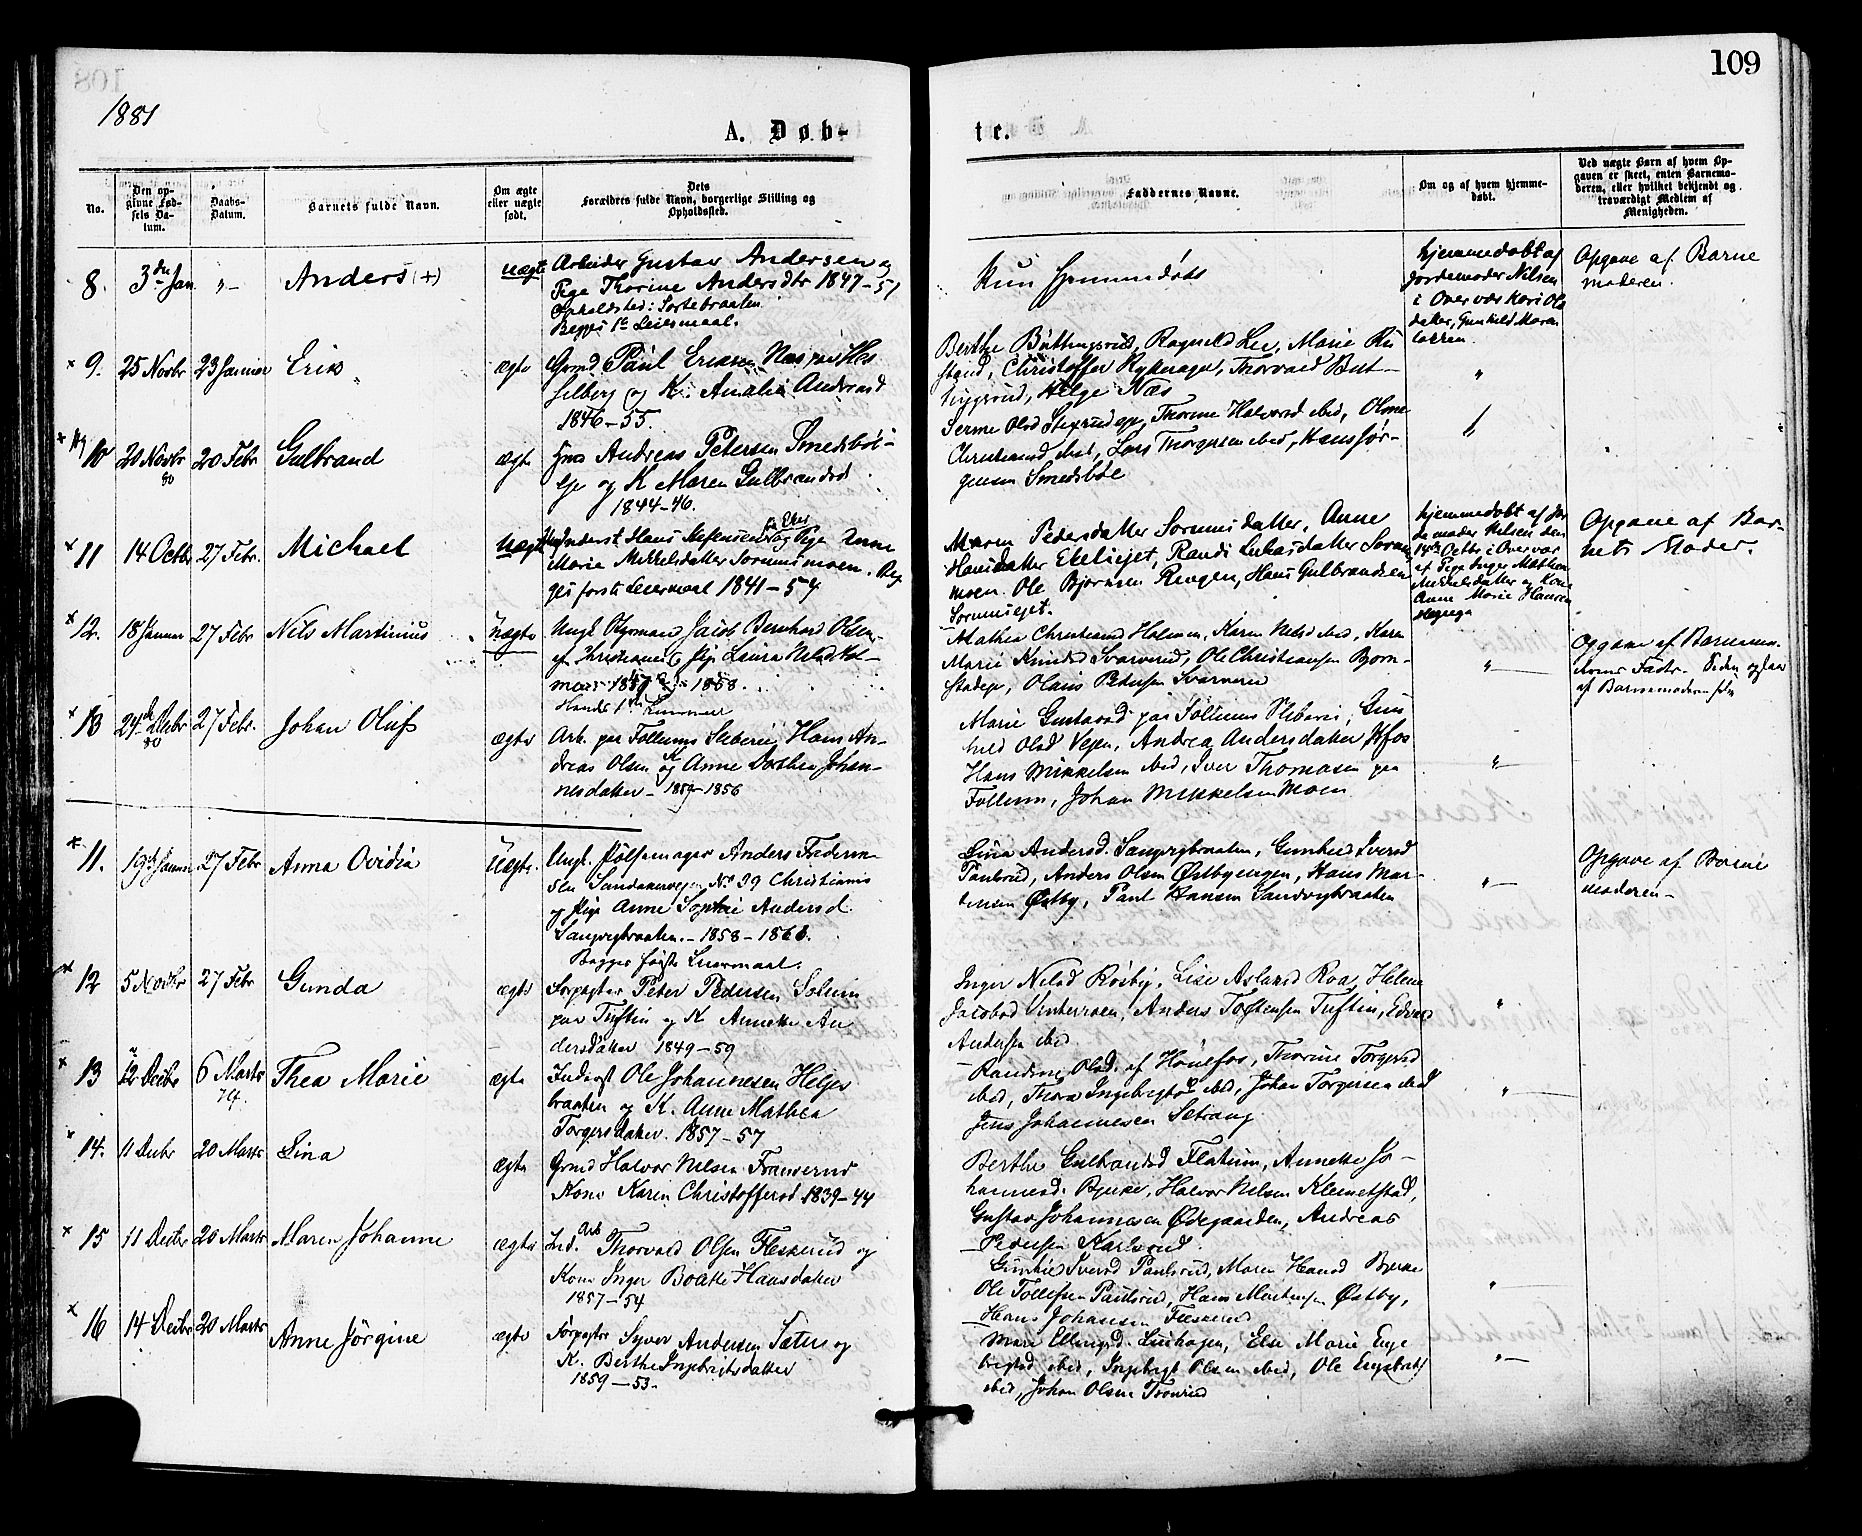 109
1881
A. Døb-
te.
No.
Den op-
givne Fød-
sels Da-
tum.
Daabs-
Datum.
Barnets fulde Navn.
Om ægte
eller uægte
født.
Dets
Forældres fulde Navn, borgerlige Stilling og
Opholdssted.
Faddernes Navne.
Om og af hvem hjemme-
døbt.
Ved uægte Barn af hvem Op-
gaven er skeet, enten Barnemo-
deren, eller hvilket bekjendt og
troværdigt Medlem af
Menigheden.
8. 3die Jan "- Anders (+) uægte
Arbeider Gustav Andersen og
Pige Thorine Andersdtr 1847-51
Opholdsted: Sortebraaten
Begges 1te Leiermaal.
Kun hjemmedøbt
hjemmedøbt af
Jordemoder Nilsen
i Overvær Kari Ols
datter, Gunhild
Opgave af Barne
moderen.
x 9. 25 Novbr 23 Januar Erik ægte
Grmd. Paul Ericsen Næs paa Hes
selberg og K. Amalia Andersd
1846-55.
Berthe Büttingsrud, Ragnhild Lee, Marie
Christoffer Thorvald But-
tingsrud, Helge Næs
"
x 10 20 Novbr 80 20 Febr Gulbrand ægte
Andreas Petersen Smedsböl-
eje og K Maren Gulbrandsd
1844-46.
Olsd Thorine Halvorsd ibid, Oline
Christiansd ibid, Lars Thorgersen ibid, Hans Jör-
gensen Smedsböle
"
x 11 14 Octbr 27 Febr. Michael uægte
Inderst. Hans og Pige Anne
Marie Mikkelsdatter Sörumsmoen. Beg
ges første Leiermaal 1841-54
Maren Pedersdatter Anne
Hansdatter Ekelsejet, Randi Lukasdatter Sörum
moen. Ole Björnsen Ringen, Hans Gulbrandsen
Sörumsejet.
hjemmedøbt af Jor
demoder Nilsen den
14de Octbr i Overvær
af Pige Inger Mathea
Mikkelsdatter og Kone
Anne Marie Hansen
Opgave af Bar-
nets Moder.
x 12. 18 Januar 27 Febr Nils Martinius uægte
Ungk. Jacob Bernhard Olsen
Pige Laura Nilsd Hol-
men 1857 1858.
Hendes 1ste Leiermaal
Mathia Christiansd Holmen, Karen Nilsd ibid, Karen
Marie Knudsd Svarverud, Ole Christiansen Bjørn-
stadeje, Olaus Pedersen Svarverud
"-
Opgave af Barnemo-
derens Fader. Siden ogsaa
af Barnemoderen selv
x 13 24de Decbr 80 27 Febr. Johan Oluf ægte
Arb. paa Follums Sliberie, Hans An-
dreas Olsen og K Anne Dorthea Johan-
nesdatter - 1859-1856
Marie Gustavsd paa Follums Sliberi, Gun
hild Olsd Vejen, Andrea Andersdatter
Hans Mikkelsen ibid, Iver Thomasen paa
Follum, Johan Mikkelsen Moen
"-
x 11. 19de Januar 27 Febr Anna Ovidia uægte.
Ungk. Pølsemager Anders
Sandakerveien No 39 Christiania
og Pige Anne Sophie Andersd.
Sangvigbraaten. - 1858-
Begges første Leiermaal.
Lina Andersd. Sangvigbraaten, Gunhild Iversd
Paulsrud, Anders Olsen Østbyengen, Hans Mar-
tensen Østby, Paul Hansen Sandvigbraaten
"-
Opgave af Barne
moderen-
x 12 5 Novbr 27 Febr Gunda ægte
Forpagter Peter Pedersen Solum
paa Tuftin og K. Annette An
dersdatter 1849-59
Inger Nilsd Röisby, Lise Aslaksd Roa, Helene
Jacobsd Vinterroen, Anders Tostensen Tuftin, Edvard
Andersen ibid.
"
x 13 12 Decbr 6 Marts Thea Marie ægte
Inderst Ole Johannesen Helges
braaten og K. Anne Mathea
Torgersdatter. 1857-57
Randine Olsd. af Hönefos, Thorine Torgersd
ibid, Thora Ingebrigtsd ibid, Johan Torgersen ibid
Jens Johannesen Setrang
"-
14. 11 Decbr 20 Marts Lina ægte
Grmd Halvor Nilsen
Kone Karin Christoffersd 1839-44
Berthe Gulbrandsd Flatum, Annette Jo-
hannesd. Bjerke, Halvor Nilsen Klemetstad,
Gustav Johannesen Ødegaarden, Andreas
Pedersen Karlsrud.
x 15 11 Decbr 20 Marts Maren Johanne ægte
Ind. Arb Thorvald Olsen Fleskerud og
Kone Inger Bolette Hansdatter
1857-54
Gunhild Iversd Paulsrud, Maren Hansd Bjerke
Ole Tollefsen Paulsrud, Hans Mortensen Østby,
Hans Johansen Fleskerud
"
x 16 14 Decbr 20 Marts Anne Jörgine ægte
Forpagter Syver Andersen Sætre og
K. Berthe Ingebrigtsdatter
1859-53.
Mari Ellingsd. Else Marie Enge
brigtsd ibid, Ingebrigt Olsen ibid, Ole Engebretsen
ibid, Johan Olsen
"-